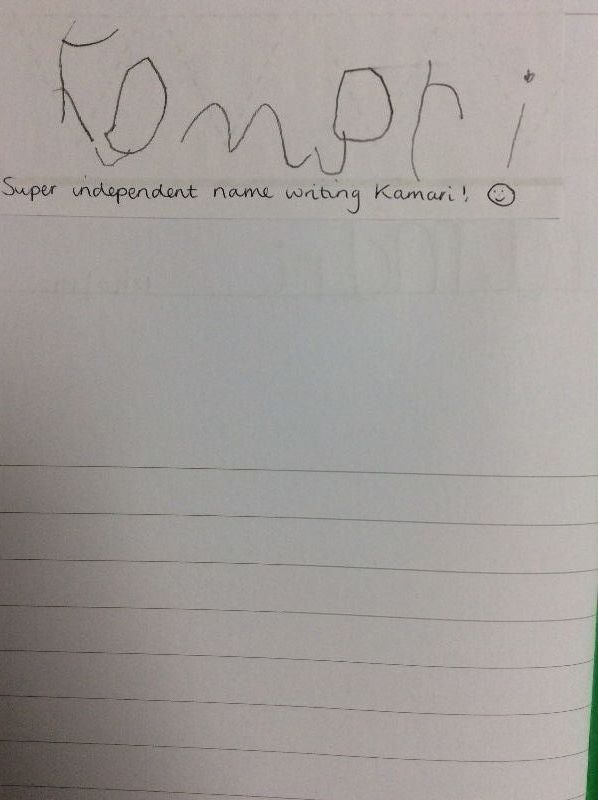 Kamari
Super independent name writing Kamari! ☺